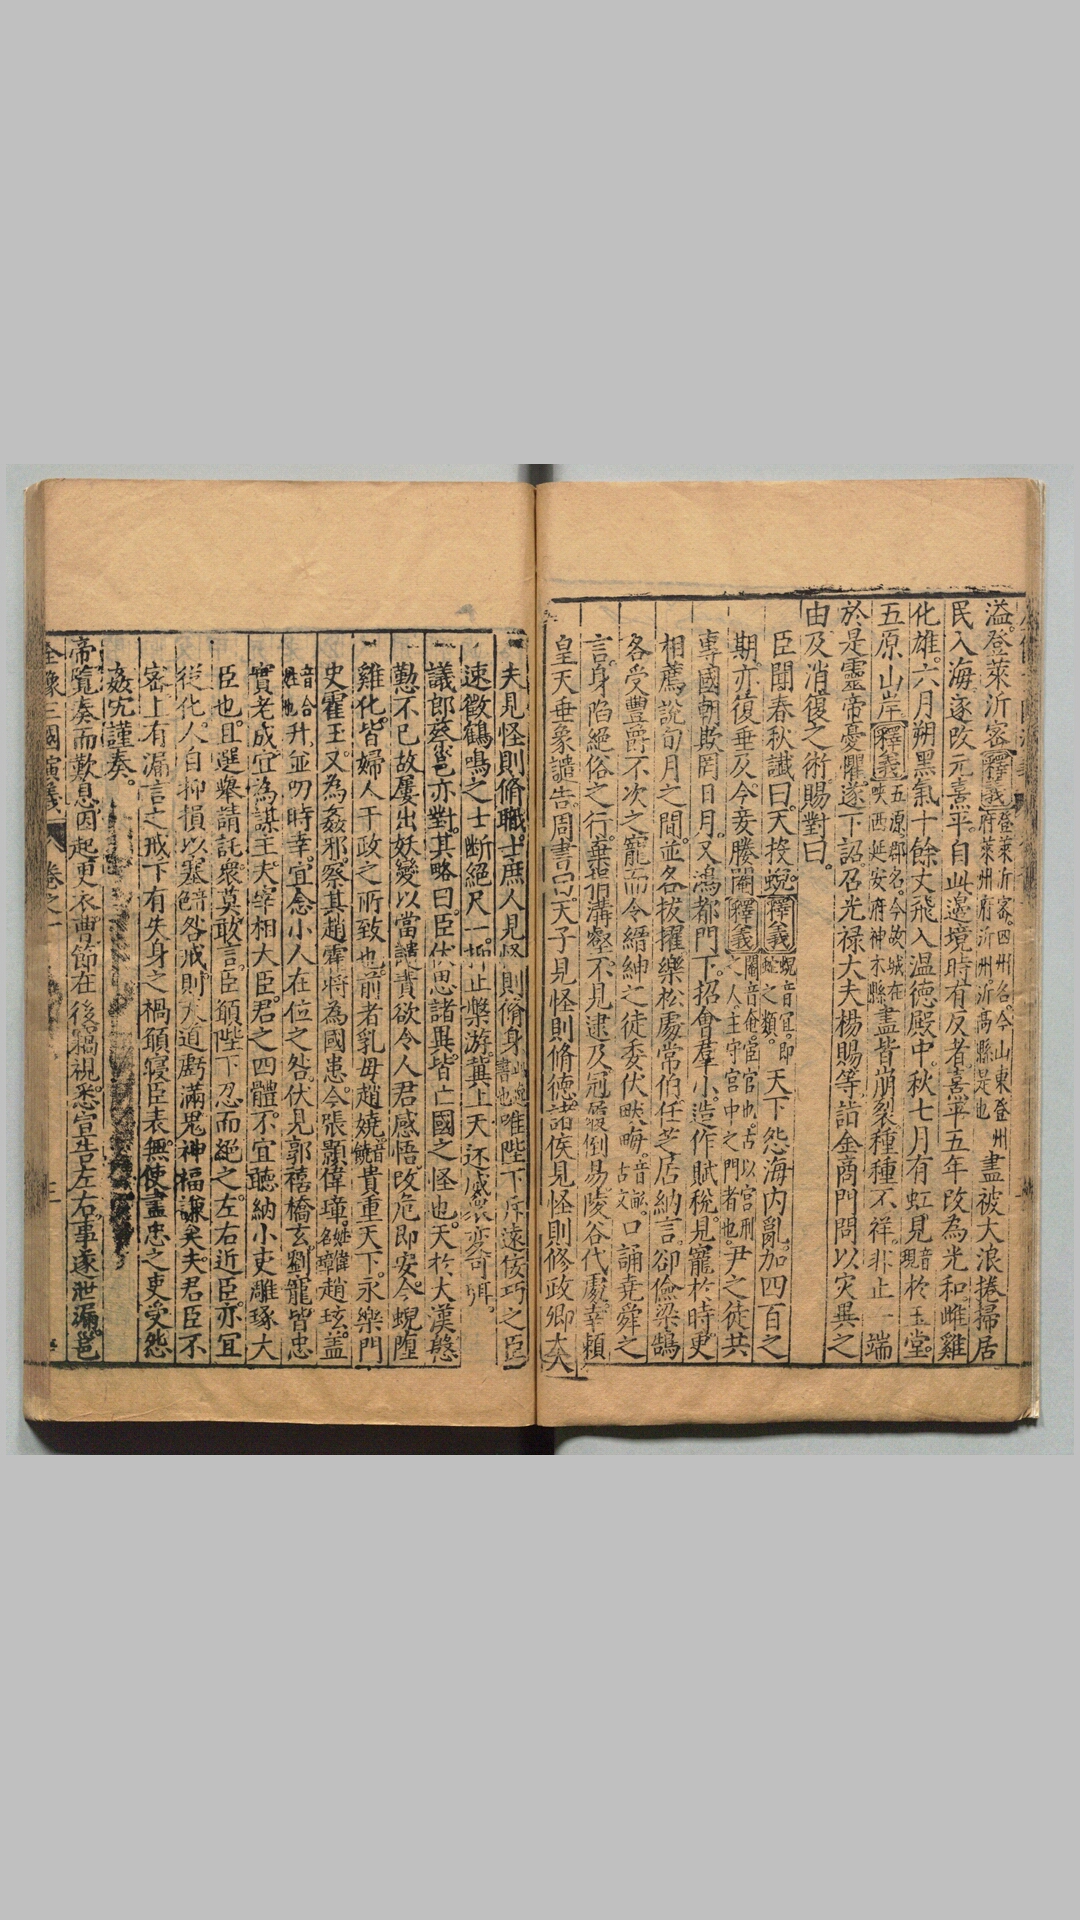 溢登萊沂密釋義登萊沂密四州名今山東登州府萊州府沂州沂高縣是也盡被大浪捲掃居
民入海遂改元熹平自此邊境時有反者熹平五年改為光和雌雞
化雄六月朔黑氣十餘丈飛入温德殿中秋七月有虹見音現於玉堂
五原山岸釋義五源郡名今故城在陝西延安府神木縣盡皆崩裂種種不祥非止一端
於是靈帝憂懼遂下詔召光禄大夫楊賜等詣金商門問以災異之
由及消復之術賜對曰
臣聞春秋讖曰天投蜺釋義蜺音宜即之類天下怨海内亂加四百之
期亦復垂及今妾媵閹釋義閹音奄宦官也古以宮刑之人主守宮中之門者也尹之徒共
專國朝欺罔日月又鴻都門下招會羣小造作賦稅見寵於時更
相薦説旬月之間並各拔擢樂松處常伯任芝居納言卻儉梁鵠
各受豐爵不次之寵而令縉紳之徒委伏畎畮音畝古文口誦堯舜之
言身陷絕俗之行棄捐溝壑不見逮及冠履倒易陵谷代處幸賴
皇天垂象譴告周書曰天子見怪則脩德諸侯見怪則修政卿大夫
夫見怪則脩職士庶人見怪則脩身書也唯陛下斥遠佞巧之臣
速徵鶴鳴之士斷絕尺一抑止槃游冀上天还威衆变可弭
議郎蔡邕亦對其略曰臣伏思諸異皆亡國之怪也天於大漢慇
懃不已故屢出妖變以當譴責欲令人君感悟改危即安今蜺墮
雞化皆婦人干政之所致也前者乳母趙嬈音饒貴重天下永樂門
史霍玉又為姦邪察其趙霍將為國患今張顥偉璋姓偉名璋趙玹盖
音合姓也升並叨時幸宜念小人在位之咎伏見郭禧橋玄劉寵皆忠
實老成宜為謀主夫宰相大臣君之四體不宜聽納小吏雕琢大
臣也且選舉請託衆莫敢言臣願陛下忍而絕之左右近臣亦宜
從化人自抑損以塞咎戒則天道虧滿鬼神福謙矣夫君臣不
密上有漏言之戒下有失身之禍願寝臣表無使盡忠之吏受怨
姦宄謹奏
帝覧奏而歎息因起更衣曹節在後竊視悉宣告左右事遂泄漏邕
全像三國演義 卷之一 三